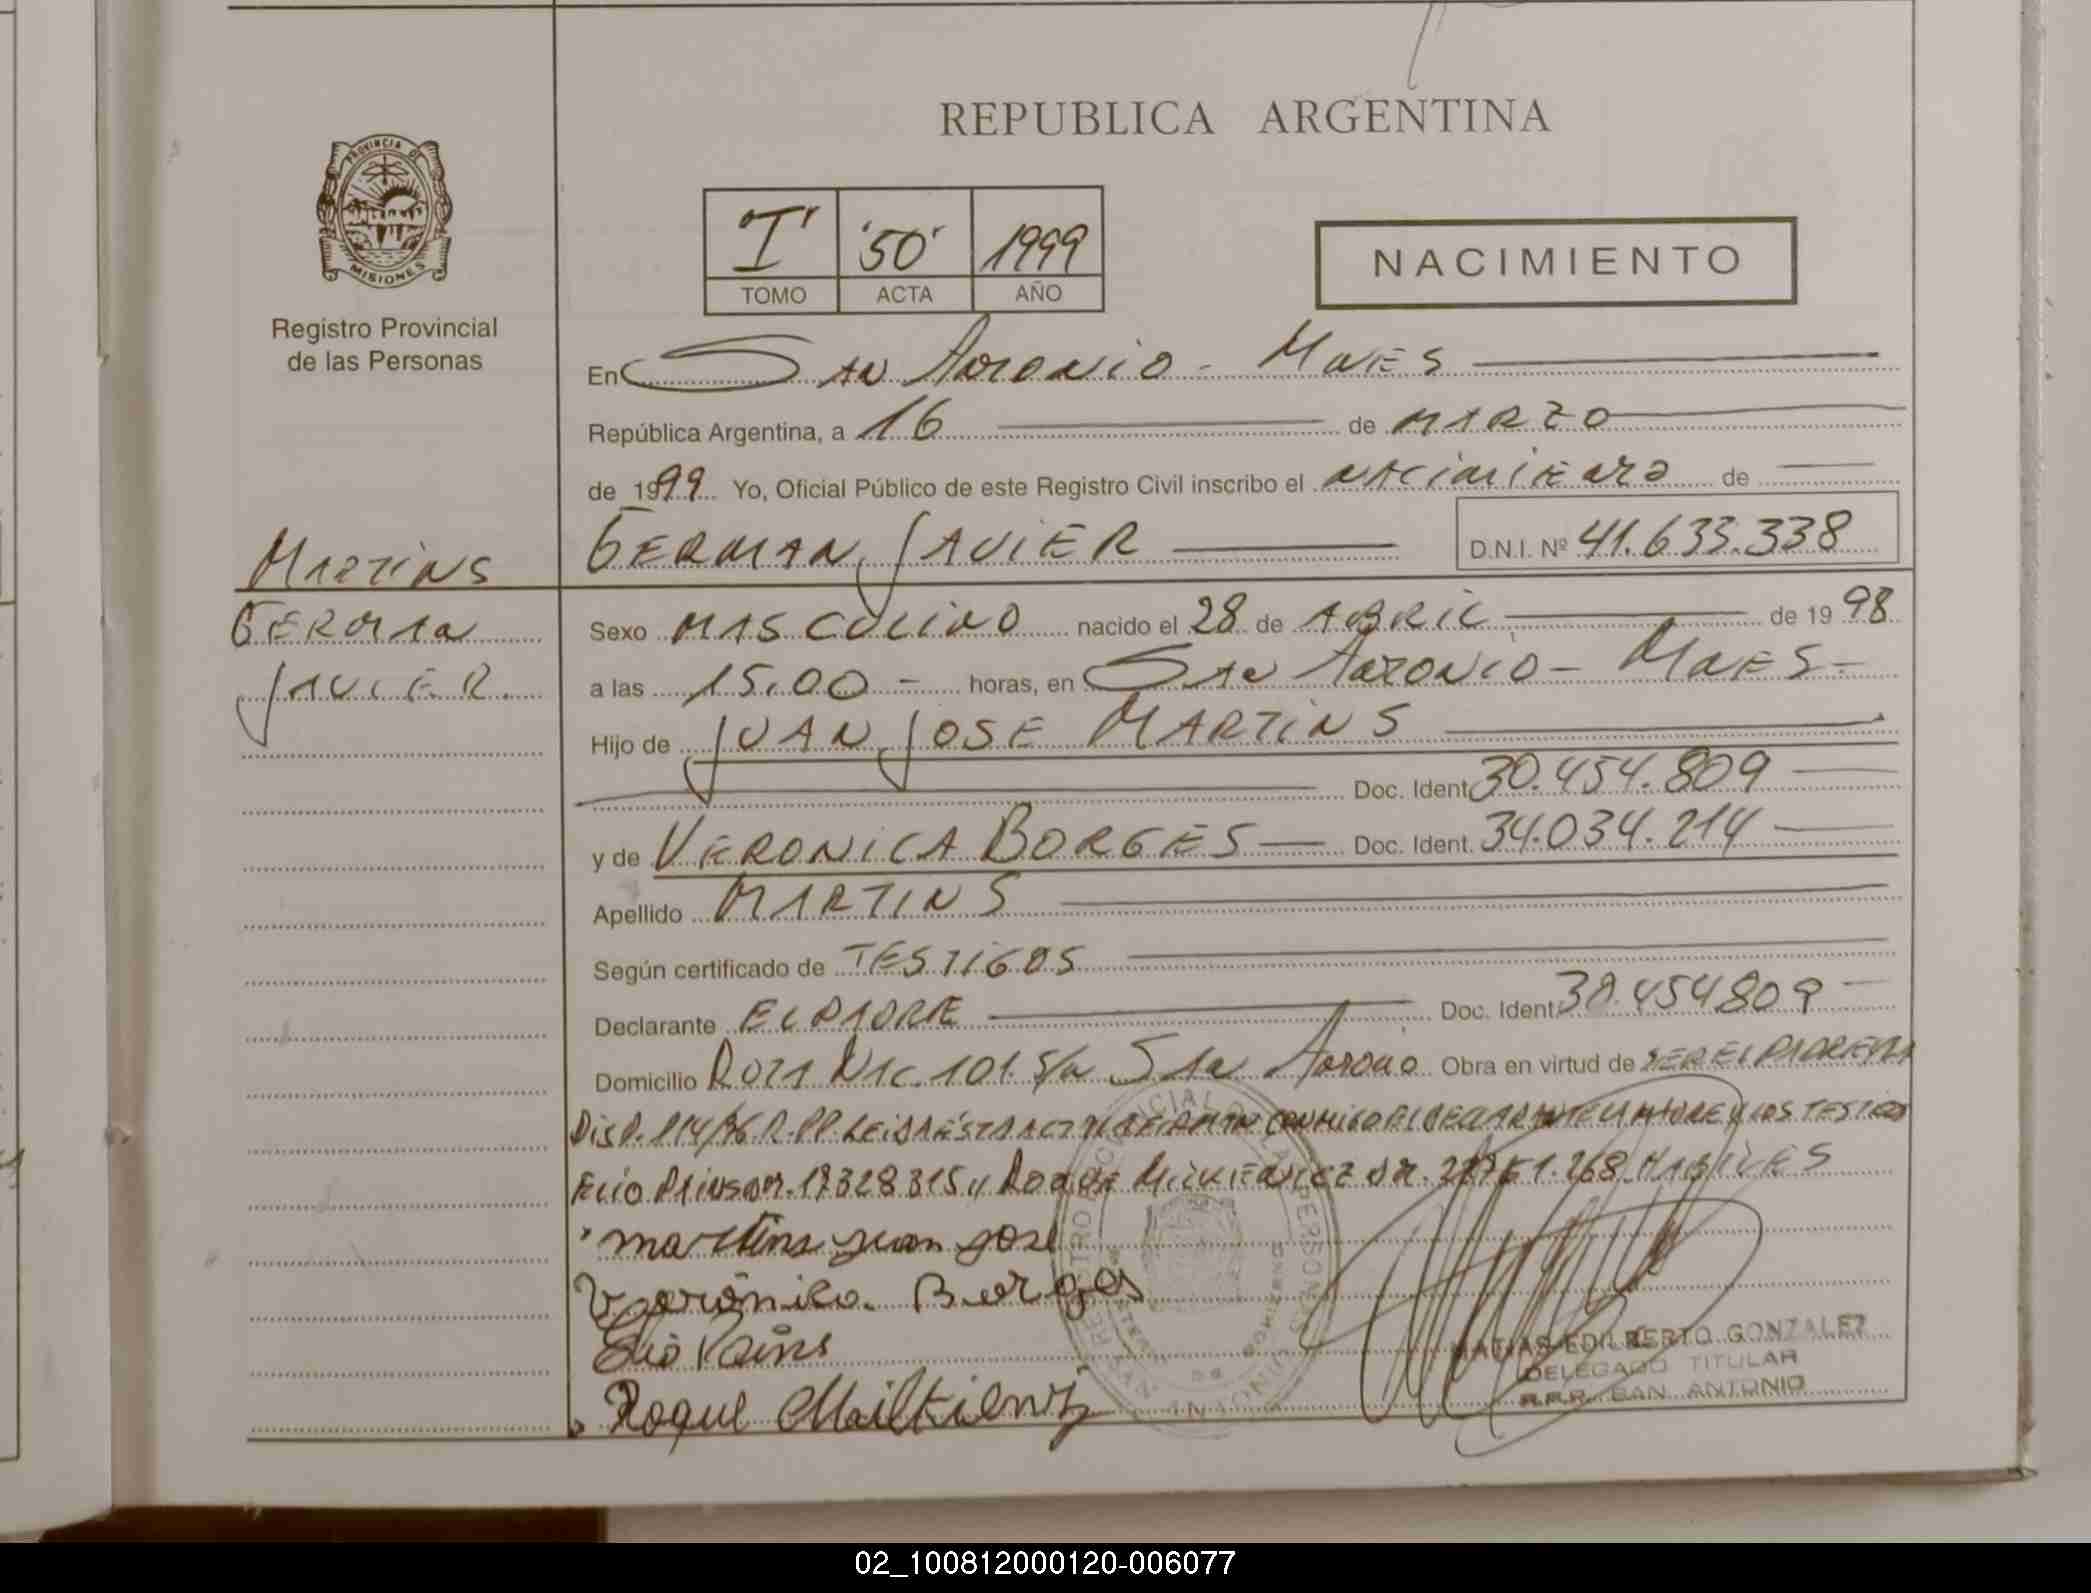 REPUBLICA ARGENTINA
PROVINCIA DE
MISIONES
Registro Provincial
de las Personas
"I" "50" 1999
TOMO ACTA AÑO
NACIMIENTO
En SAN ANTONIO - MNES
República Argentina, a 16 de MARZO
de 1999 Yo, Oficial Público de este Registro Civil inscribo el NACIMIENTO de
GERMAN JAVIER D.N.I. Nº 41.633.338
MARTINS
GERMAN
JAVIER
Sexo MASCULINO nacido el 28 de ABRIL de 1998
a las 15.00 - horas, en SAN ANTONIO - MNES -
Hijo de JUAN JOSE MARTINS
Doc. Ident. 30.454.809
y de VERONICA BORGES Doc. Ident. 34.034.214
Apellido MARTINS
Según certificado de TESTIGOS
Declarante EL PADRE Doc. Ident. 30.454809
Domicilio RUTA NAC. 101. S/N SAN ANTONIO Obra en virtud de SER EL PADRE
DISP. 114/96 R.P.P. LEIDA ESTA ACTA LA FIRMAN CONMIGO EL DECLARANTE LA MADRE Y LOS TESTIGOS
ELIO 17328315 ROQUE HABILES
martins juan jose
Verónica Borges
Elio
Roque
MATIAS EDILBERTO GONZALEZ
DELEGADO TITULAR
R.P.P. SAN ANTONIO
02_100812000120-006077